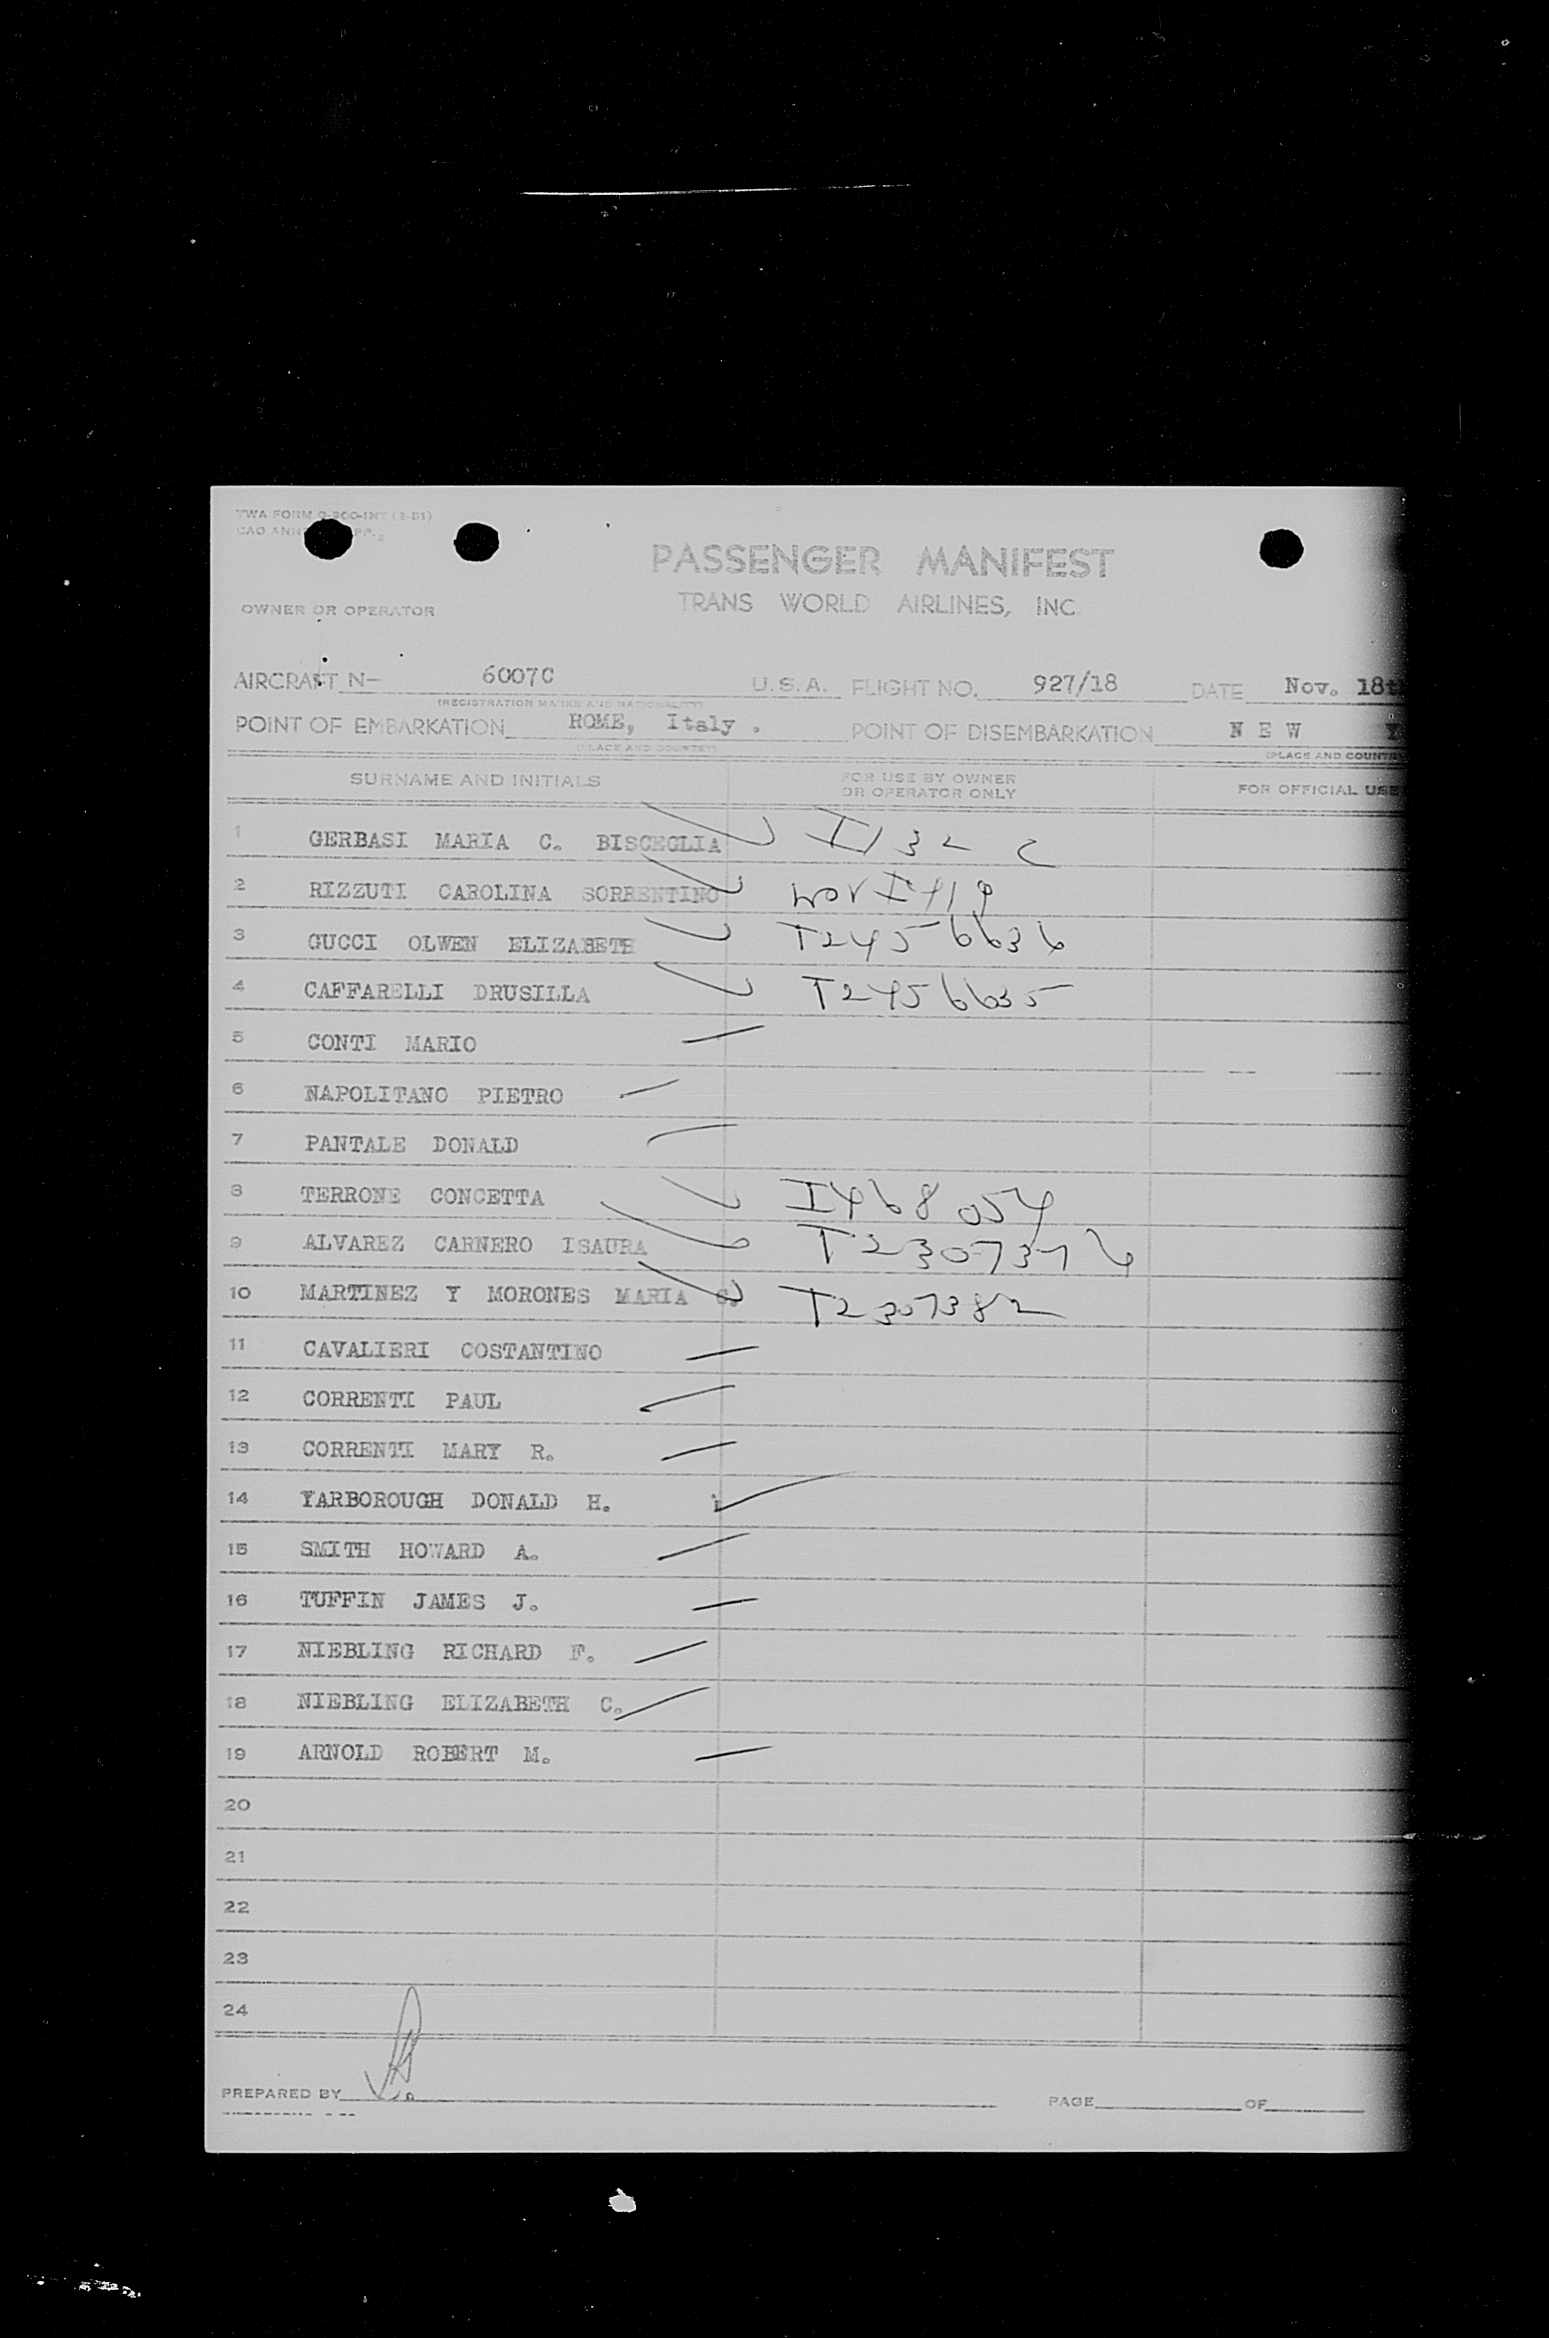 TWA FORM O-300-INT (2-51)
CAO ANN
OWNER OR OPERATOR
PASSENGER MANIFEST
TRANS WORLD AIRLINES, INC.
AIRCRAFT N- 6007C U.S.A. FLIGHT NO. 927/18 DATE Nov. 18t
(REGISTRATION MARKS AND NATIONALITY)
POINT OF EMBARKATION ROME, Italy . POINT OF DISEMBARKATION N E W Y
(PLACE AND COUNTRY) (PLACE AND COUNTR
SURNAME AND INITIALS FOR USE BY OWNER OR OPERATOR ONLY FOR OFFICIAL USE
1 GERBASI MARIA C. BISCEGLIA
2 RIZZUTI CAROLINA SORRENTINO
3 GUCCI OLWEN ELIZABETH T2456636
4 CAFFARELLI DRUSILLA T2456635
5 CONTI MARIO
6 NAPOLITANO PIETRO
7 PANTALE DONALD
8 TERRONE CONCETTA I468054
9 ALVAREZ CARNERO ISAURA T2307376
10 MARTINEZ Y MORONES MARIA C. T2307382
11 CAVALIERI COSTANTINO
12 CORRENTI PAUL
13 CORRENTI MARY R.
14 YARBOROUGH DONALD H.
15 SMITH HOWARD A.
16 TUFFIN JAMES J.
17 NIEBLING RICHARD F.
18 NIEBLING ELIZABETH C.
19 ARNOLD ROBERT M.
20
21
22
23
24
PREPARED BY PAGE OF